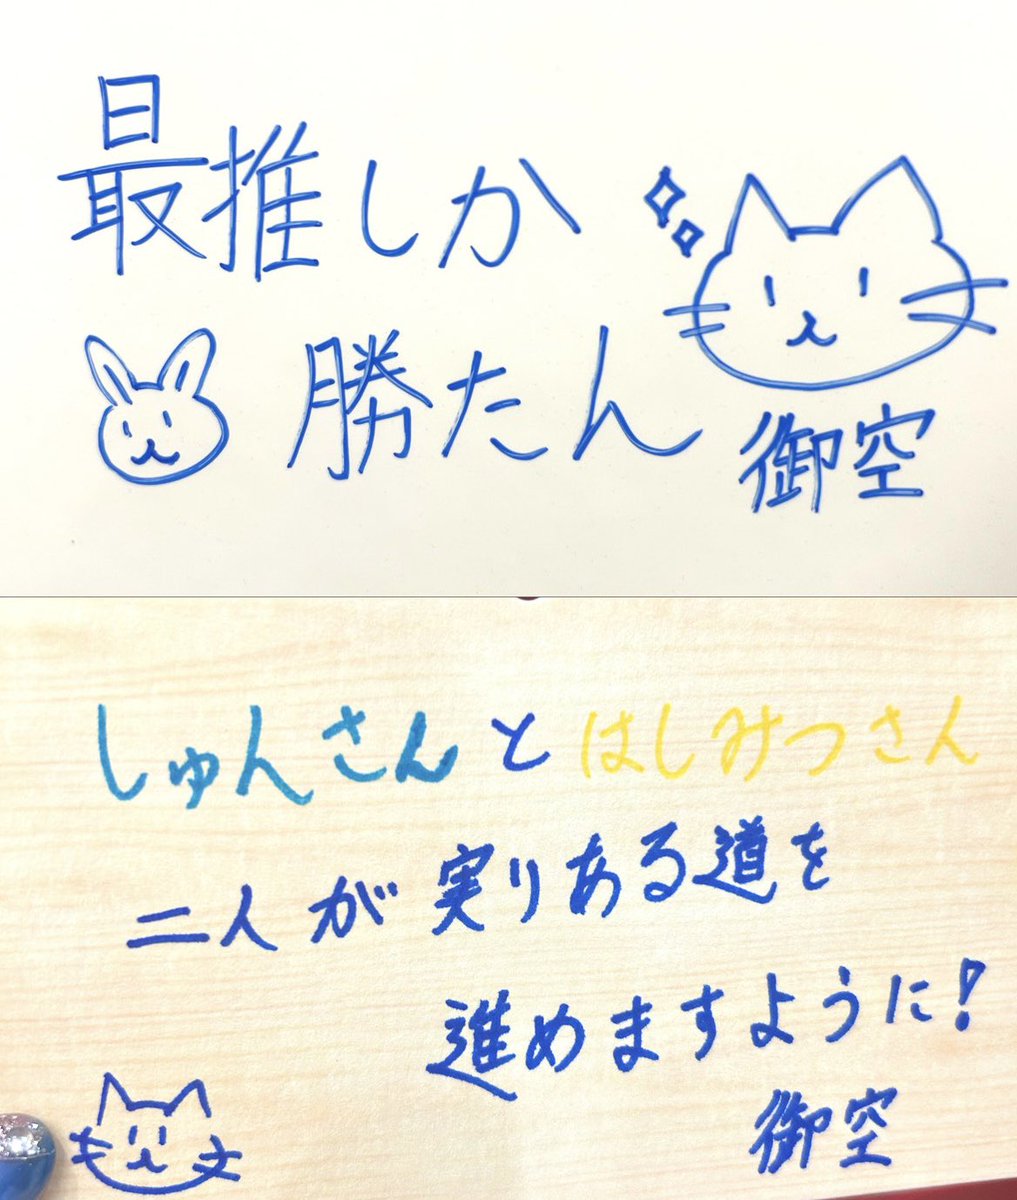 最推しか
勝たん
御空
しゅんさんとはしみつさん
二人が実りある道を
進めますように!
御空